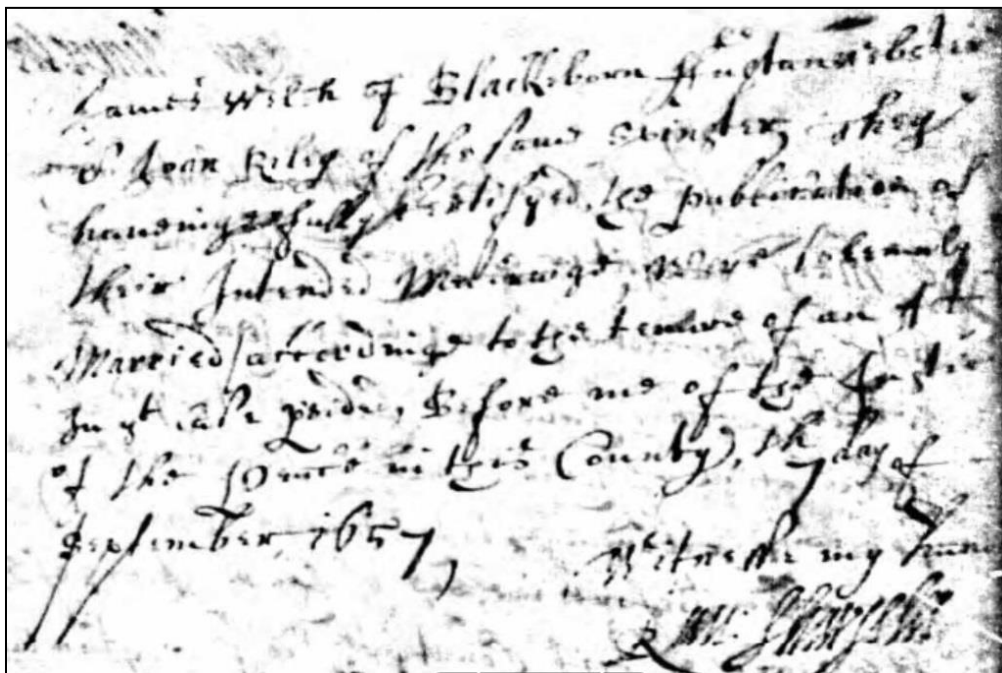 James Welch of Blackeborn
and Joan Riley of the same Spinster, they
haveinge fully Certifyed, the publication of
their Intended Marriage, were solemnly
Married accordinge to the tenure of an Act
In yt case pvided, Before me of the Justic
of the Peace in this County, th 7 day of
September, 1657,
Witnesse my hand